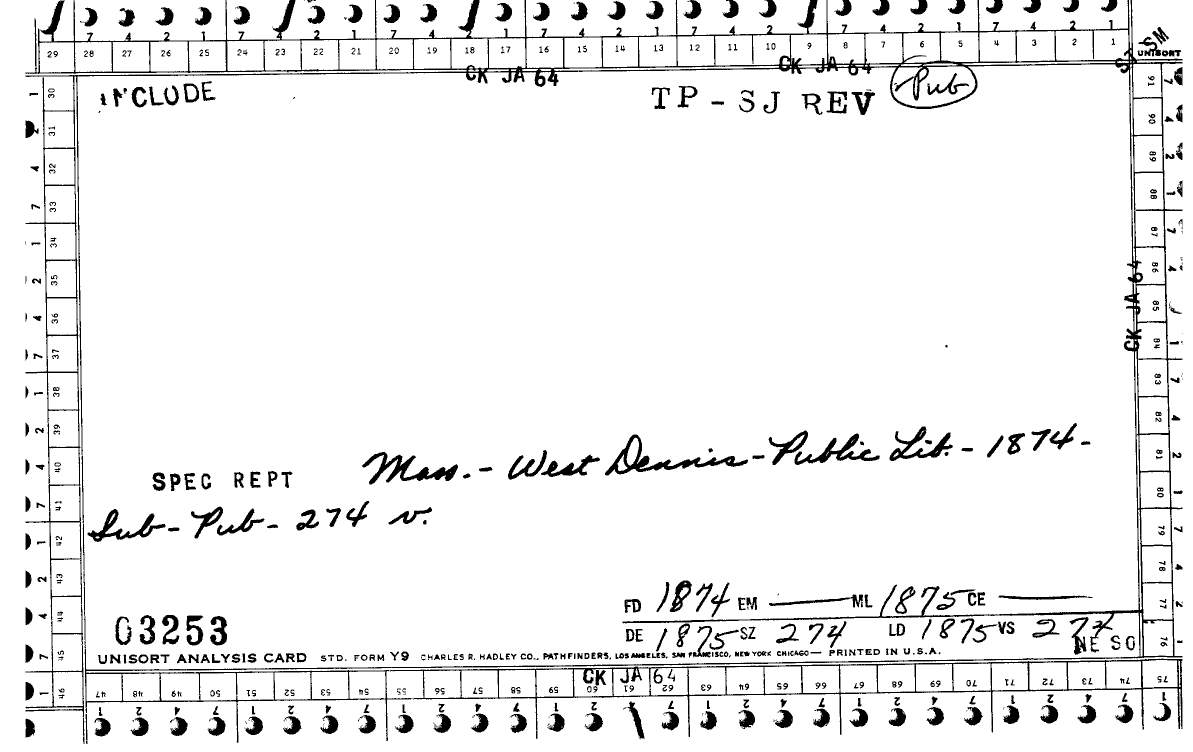 7 4 2 1 7 4 2 1 7 4 2 1 7 4 2 1 7 4 2 1 7 4 2 1 7 4 2 1
29 28 27 26 25 24 23 22 21 20 19 18 17 16 15 14 13 12 11 10 9 8 7 6 5 4 3 2 1
SJ SM
UNISORT
CK JA 64 CK JA 64
INCLUDE TP - SJ REV Pub
1 30
2 31
4 32
7 33
1 34
2 35
4 36
7 37
1 38
2 39
4 40
7 41
1 42
2 43
4 44
7 45
1 46
91
90
89
88
87
86
85
84
83
82
81
80
79
78
77
76
CK JA 64
SPEC REPT Mass. - West Dennis - Public Lib. - 1874 -
Sub - Pub - 274 v.
FD 1874 EM — ML 1875 CE —
DE 1875 SZ 274 LD 1875 VS 274
03253 NE SO
UNISORT ANALYSIS CARD STD. FORM Y9 CHARLES R. HADLEY CO., PATHFINDERS, LOS ANGELES, SAN FRANCISCO, NEW YORK CHICAGO — PRINTED IN U.S.A.
CK JA 64
47 48 49 50 51 52 53 54 55 56 57 58 59 60 61 62 63 64 65 66 67 68 69 70 71 72 73 74 75